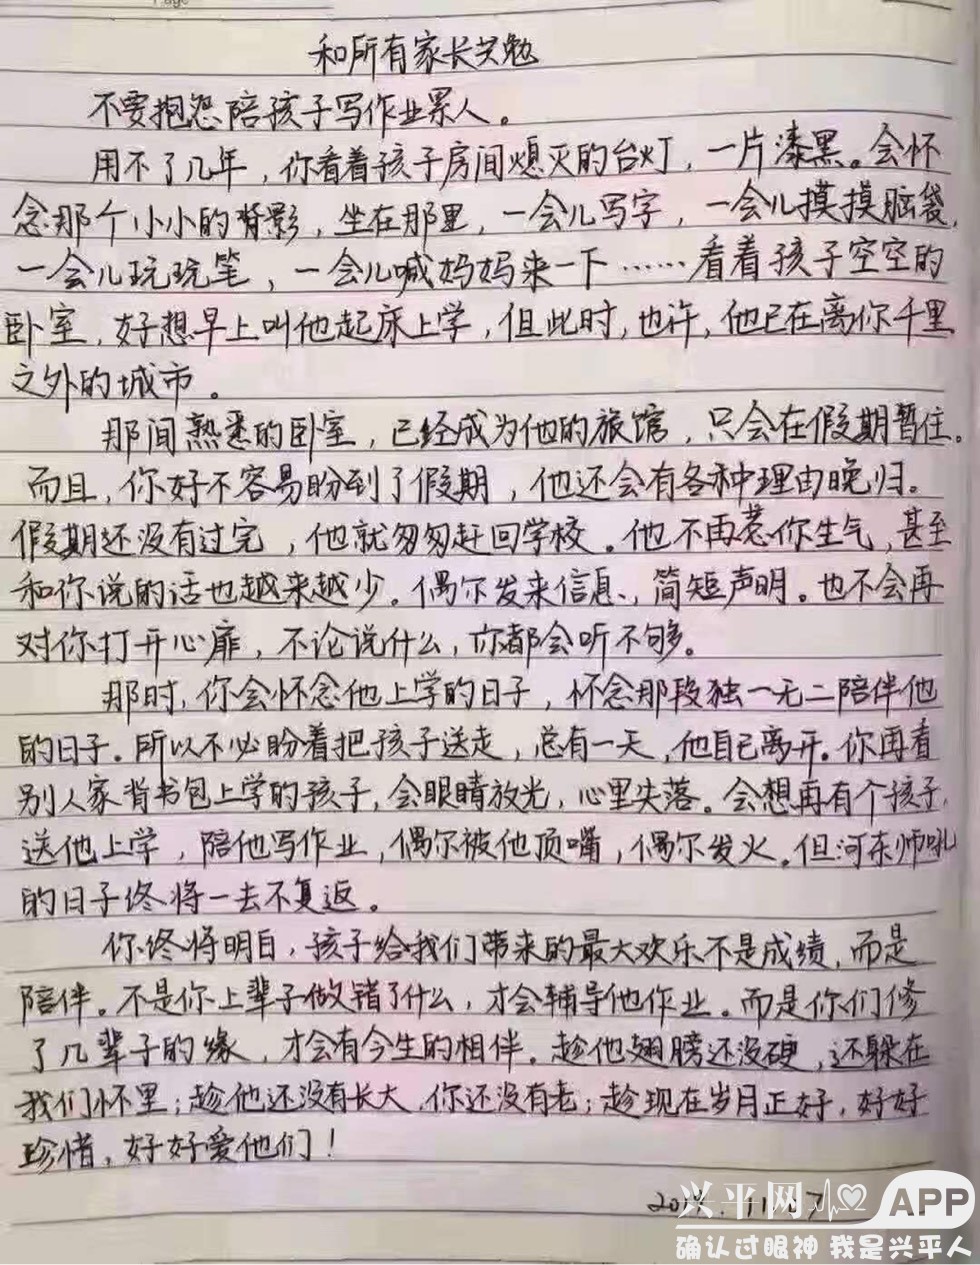 Page
和所有家长共勉
不要抱怨陪孩子写作业累人。
用不了几年，你看着孩子房间熄灭的台灯，一片漆黑。会怀
念那个小小的背影，坐在那里，一会儿写字，一会儿摸摸脑袋，
一会儿玩玩笔，一会儿喊妈妈来一下……看着孩子空空的
卧室，好想早上叫他起床上学，但此时，也许，他已在离你千里
之外的城市。
那间熟悉的卧室，已经成为他的旅馆，只会在假期暂住。
而且，你好不容易盼到了假期，他还会有各种理由晚归。
假期还没有过完，他就匆匆赶回学校。他不再惹你生气，甚至
和你说的话也越来越少。偶尔发来信息，简短声明。也不会再
对你打开心扉，不论说什么，你都会听不够。
那时，你会怀念他上学的日子，怀念那段独一无二陪伴他
的日子。所以不必盼着把孩子送走，总有一天，他自己离开。你再看
别人家背书包上学的孩子，会眼睛放光，心里失落。会想再有个孩子，
送他上学，陪他写作业，偶尔被他顶嘴，偶尔发火。但河东师吼
的日子终将一去不复返。
你终将明白，孩子给我们带来的最大欢乐不是成绩，而是
陪伴。不是你上辈子做错了什么，才会辅导他作业。而是你们修
了几辈子的缘，才会有今生的相伴。趁他翅膀还没硬，还躲在
我们怀里；趁他还没有长大，你还没有老；趁现在岁月正好，好好
珍惜，好好爱他们！
兴平网 APP
确认过眼神 我是兴平人